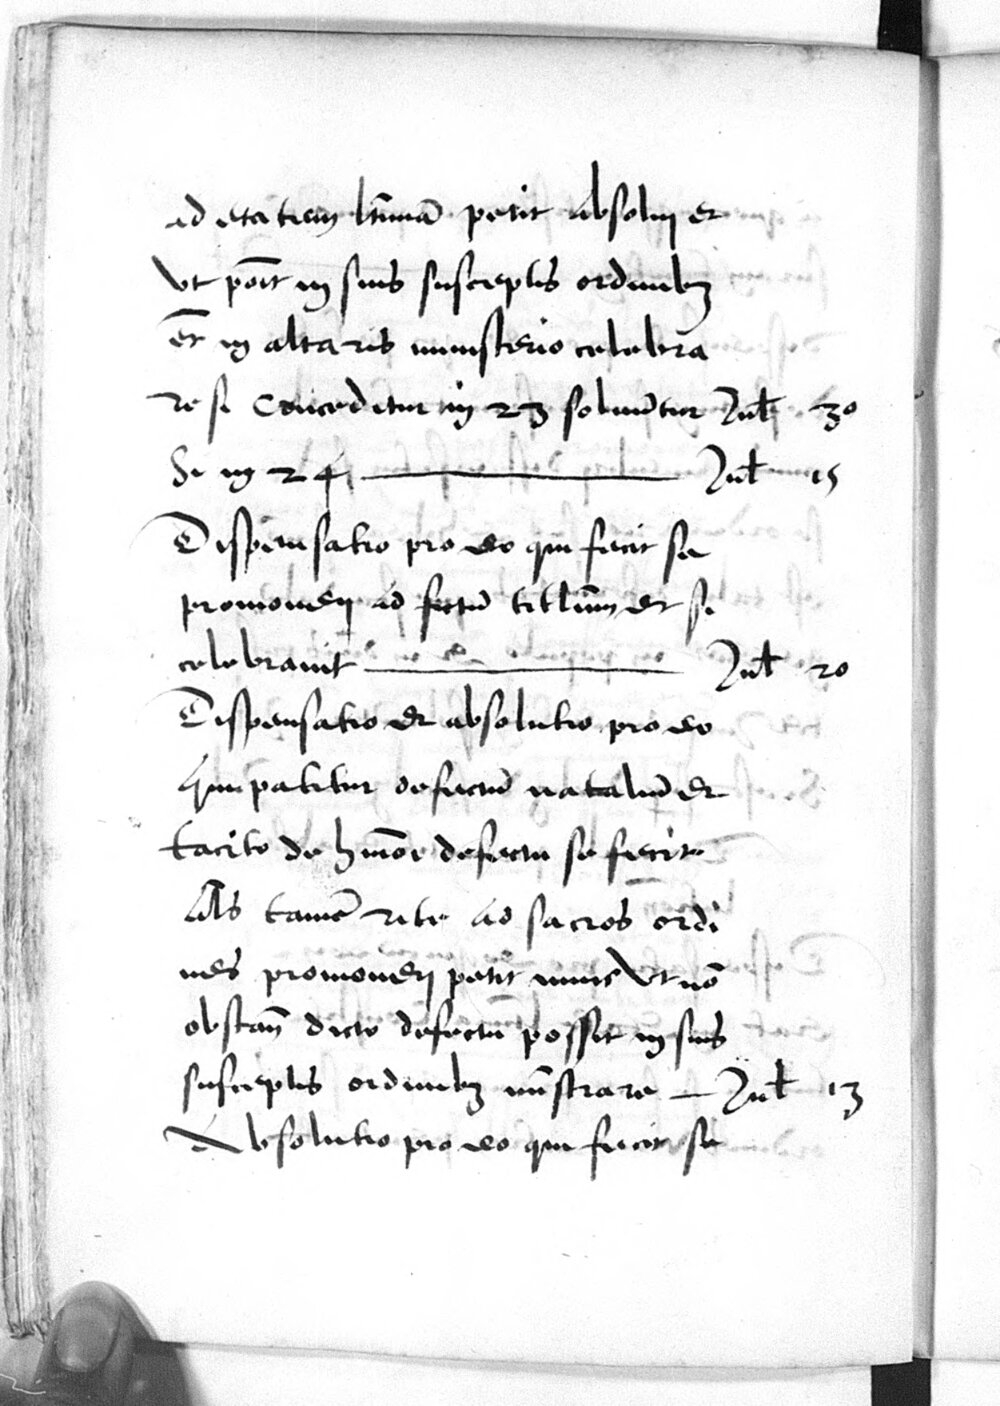 ad etatem ltīmā petit absolui et
Vt pōit in suis susceptis ordinibꝫ
et̄ in altaris ministerio celebra
re si Conceditur in 23 soluūtur Jul̄ 30
Si in 24 Jul̄ 15
Dispensatio pro eo qui fecit se
promoueri ad fictū titlūm et si
celebrauit Jul̄ 20
Dispensatio et absolutio pro eo
qui patitur defectū nataliū et
tacito de hmōi defectu se fecit
Al̄s tamē rite ad sacros ordi
nes promoueri petit nunc Vt nō
obstan̄ dicto defectu possit in suis
susceptis ordinibꝫ min̄strare Jul̄ 13
Absolutio pro eo qui fecit se